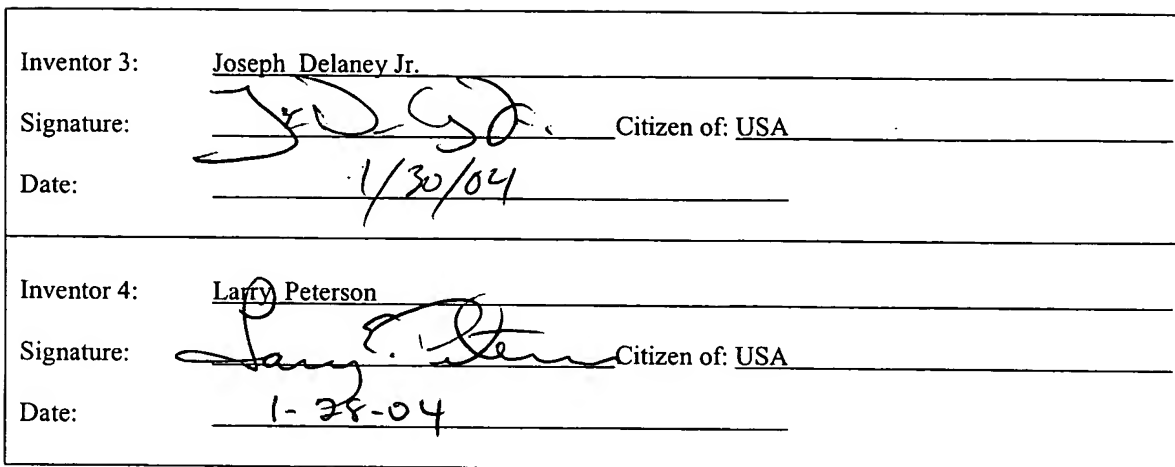 Inventor 3: Joseph Delaney Jr.
Signature: Citizen of: USA
Date: 1/30/04
Inventor 4: Larry Peterson
Signature: Larry E. Peterson Citizen of: USA
Date: 1-28-04